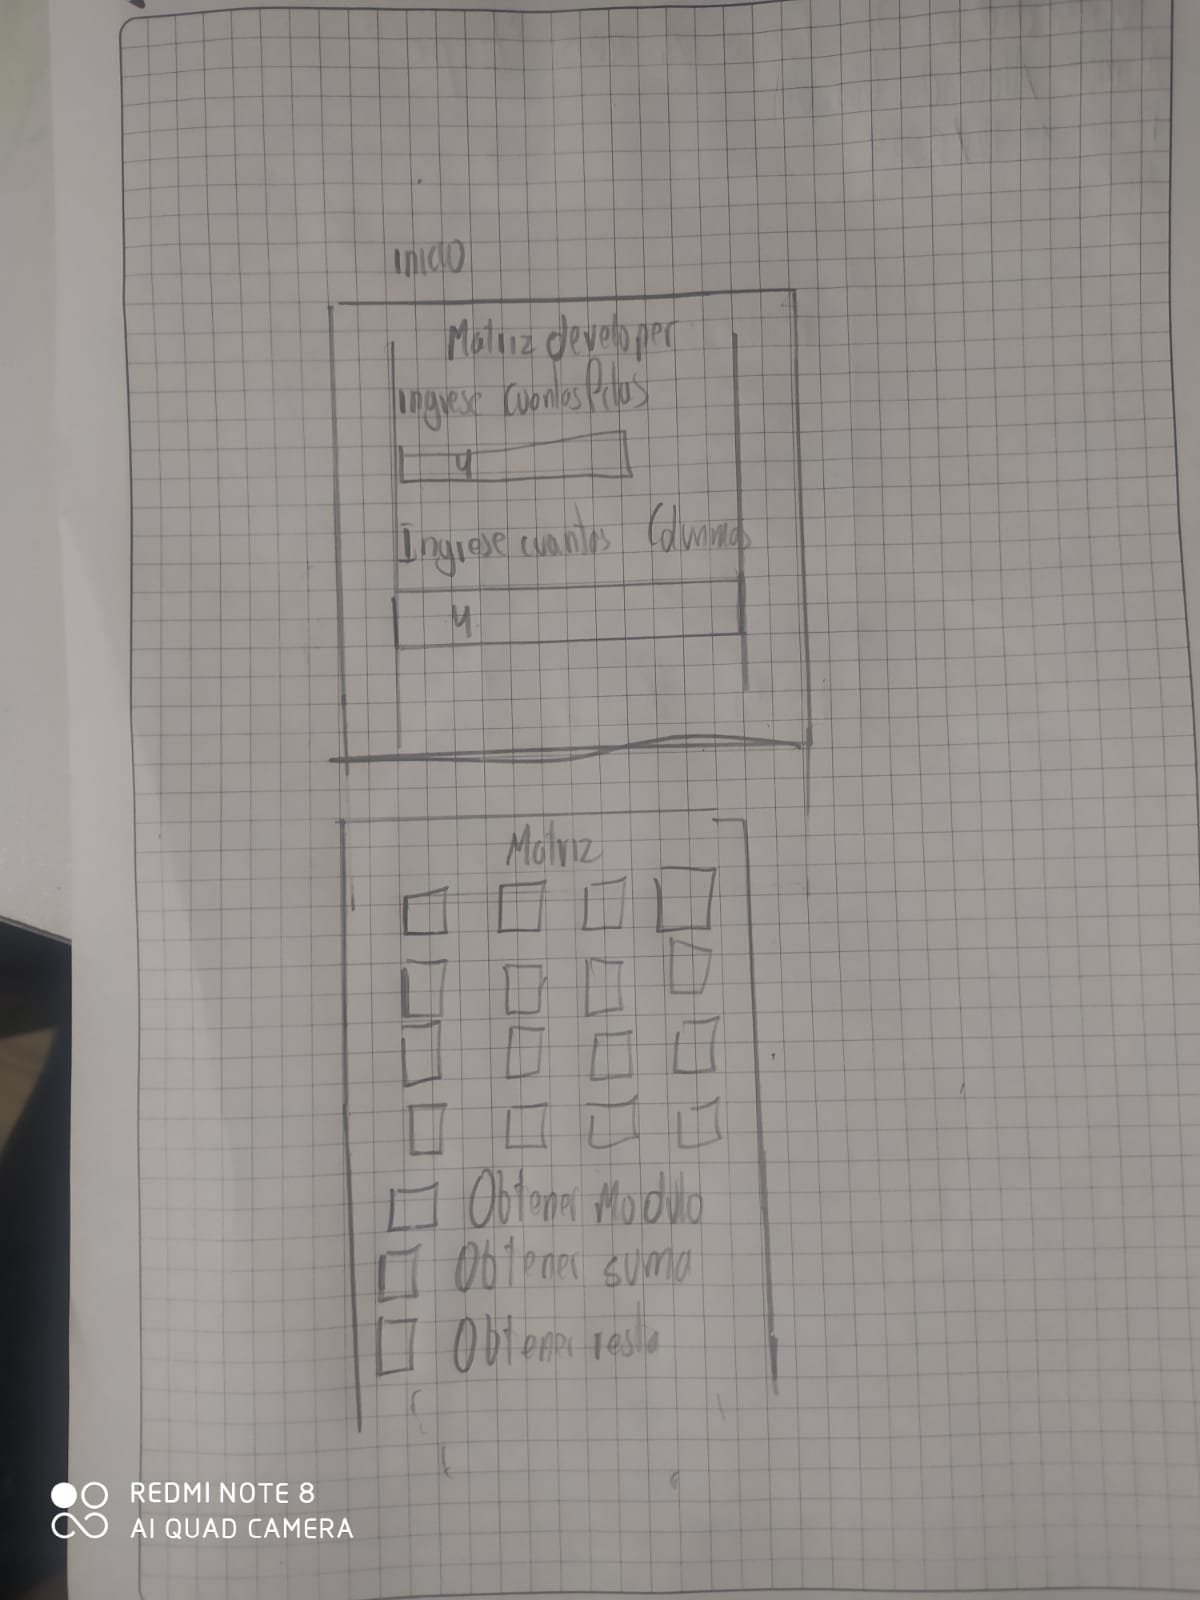 inicio
Matriz developer
ingrese cuantas filas
4
Ingrese cuantas Columnas
4
Matriz
Obtener Modulo
Obtener suma
Obtener resta
REDMI NOTE 8
AI QUAD CAMERA